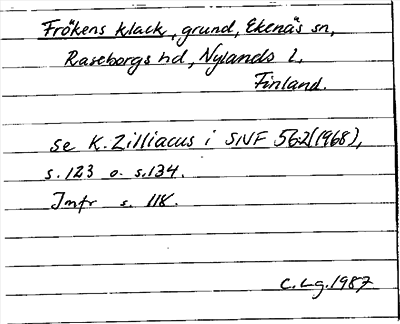 Frökens klack, grund, Ekenäs sn,
Raseborgs hd, Nylands l.
Finland.
se K. Zilliacus i SNF 56:2(1968),
s. 123 o. s. 134.
Jmfr s. 118.
C. Lg. 1987